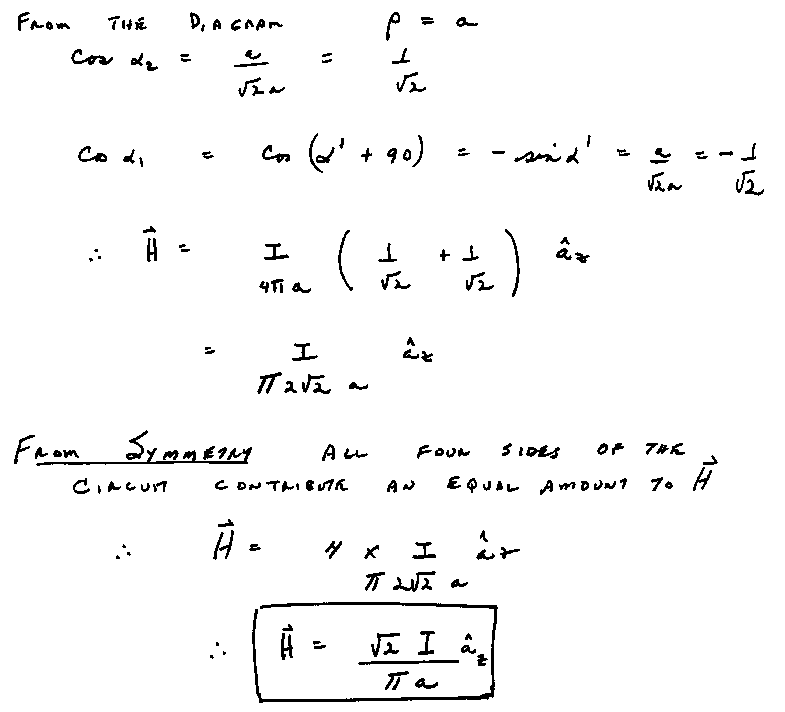 FROM THE DIAGRAM ρ = a
cos α₂ = a/√2a = 1/√2
cos α₁ = cos (α' + 90) = - sin α' = a/√2a = - 1/√2
∴ H⃗ = I/4π a ( 1/√2 + 1/√2 ) â_z
= I/π 2√2 a â_z
FROM SYMMETRY ALL FOUR SIDES OF THE
CIRCUIT CONTRIBUTE AN EQUAL AMOUNT TO H⃗
∴ H⃗ = 4 x I/π 2√2 a â_z
∴ H⃗ = √2 I/π a â_z